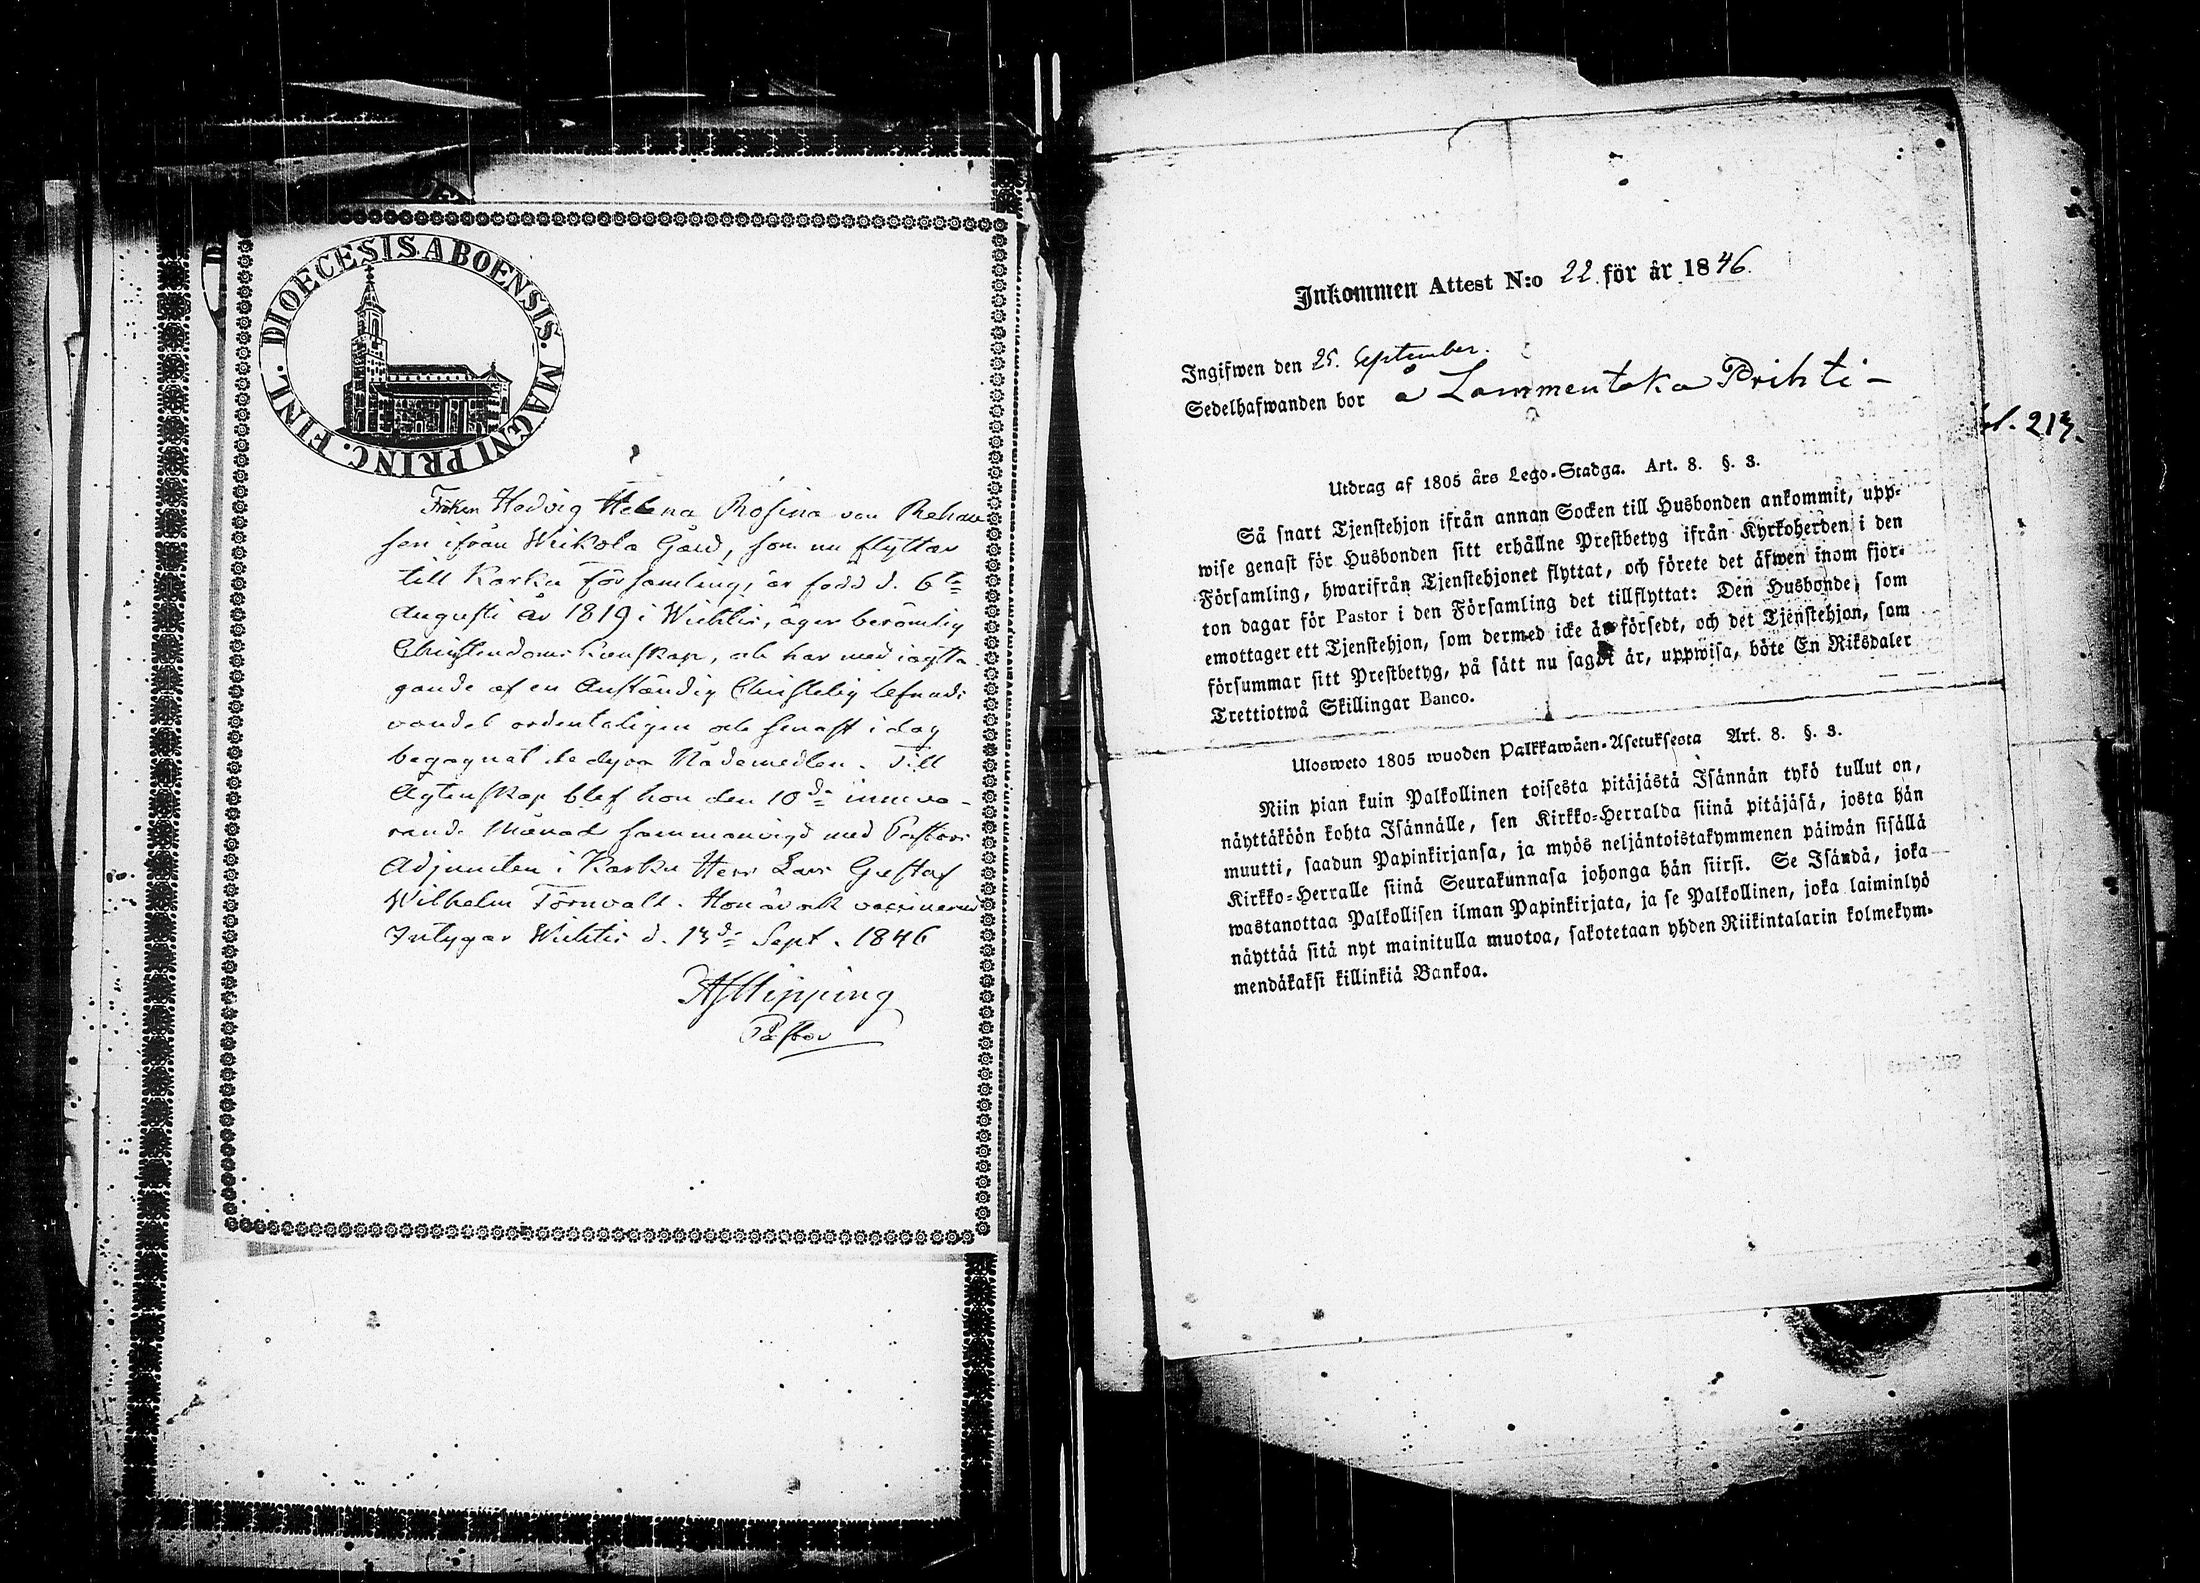 DIOECESIS ABOENSIS. MAGNI PRINC. FINL.
Fröken Hedvig Helena Rosina von Rehau-
sen ifrån Wiikola Gård, som nu flyttar
till Karku Församling, är född d. 6te
Augusti år 1819 i Wichtis, äger berömlig
Christendoms kunskap, och har med iagtta-
gande af en anständig Christelig lefnads
vandel ordenteligen och senast i dag
begagnat de dyra Nådemedlen. Till
Ägtenskap blef hon den 10de inneva-
rande Månad sammanvigd med Pastors
Adjuncten i Karku Herr Lars Gustaf
Wilhelm Törnvall. Hon är ock vaccinerad
Intygar Wichtis d. 13de Sept. 1846
Pastor
Inkommen Attest N:o 22 för år 1846.
Ingifwen den 25. September.
Sedelhafwanden bor å Lammentaka Prihti –
213.
Utdrag af 1805 års Lego-Stadga. Art. 8. §. 3.
Så snart Tjenstehjon ifrån annan Socken till Husbonden ankommit, upp-
wise genast för Husbonden sitt erhållne Prestbetyg ifrån Kyrkoherden i den
Församling, hwarifrån Tjenstehjonet flyttat, och förete det äfwen inom fjor-
ton dagar för Pastor i den Församling det tillflyttat: Den Husbonde, som
emottager ett Tjenstehjon, som dermed icke är försedt, och det Tjenstehjon, som
försummar sitt Prestbetyg, på sätt nu sagdt är, uppwisa, böte En Riksdaler
Trettiotwå Skillingar Banco.
Ulosweto 1805 wuoden Palkkawäen-Asetuksesta Art. 8. §. 3.
Niin pian kuin Palkollinen toisesta pitäjästä Isännän tykö tullut on,
näyttäköön kohta Isännälle, sen Kirkko-Herralda siinä pitäjäsä, josta hän
muutti, saadun Papinkirjansa, ja myös neljäntoistakymmenen päiwän sisällä
Kirkko-Herralle siinä Seurakunnasa johonga hän siirsi. Se Isändä, joka
wastanottaa Palkollisen ilman Papinkirjata, ja se Palkollinen, joka laiminlyö
näyttää sitä nyt mainitulla muotoa, sakotetaan yhden Riikintalarin kolmekym-
mendäkaksi killinkiä Bankoa.